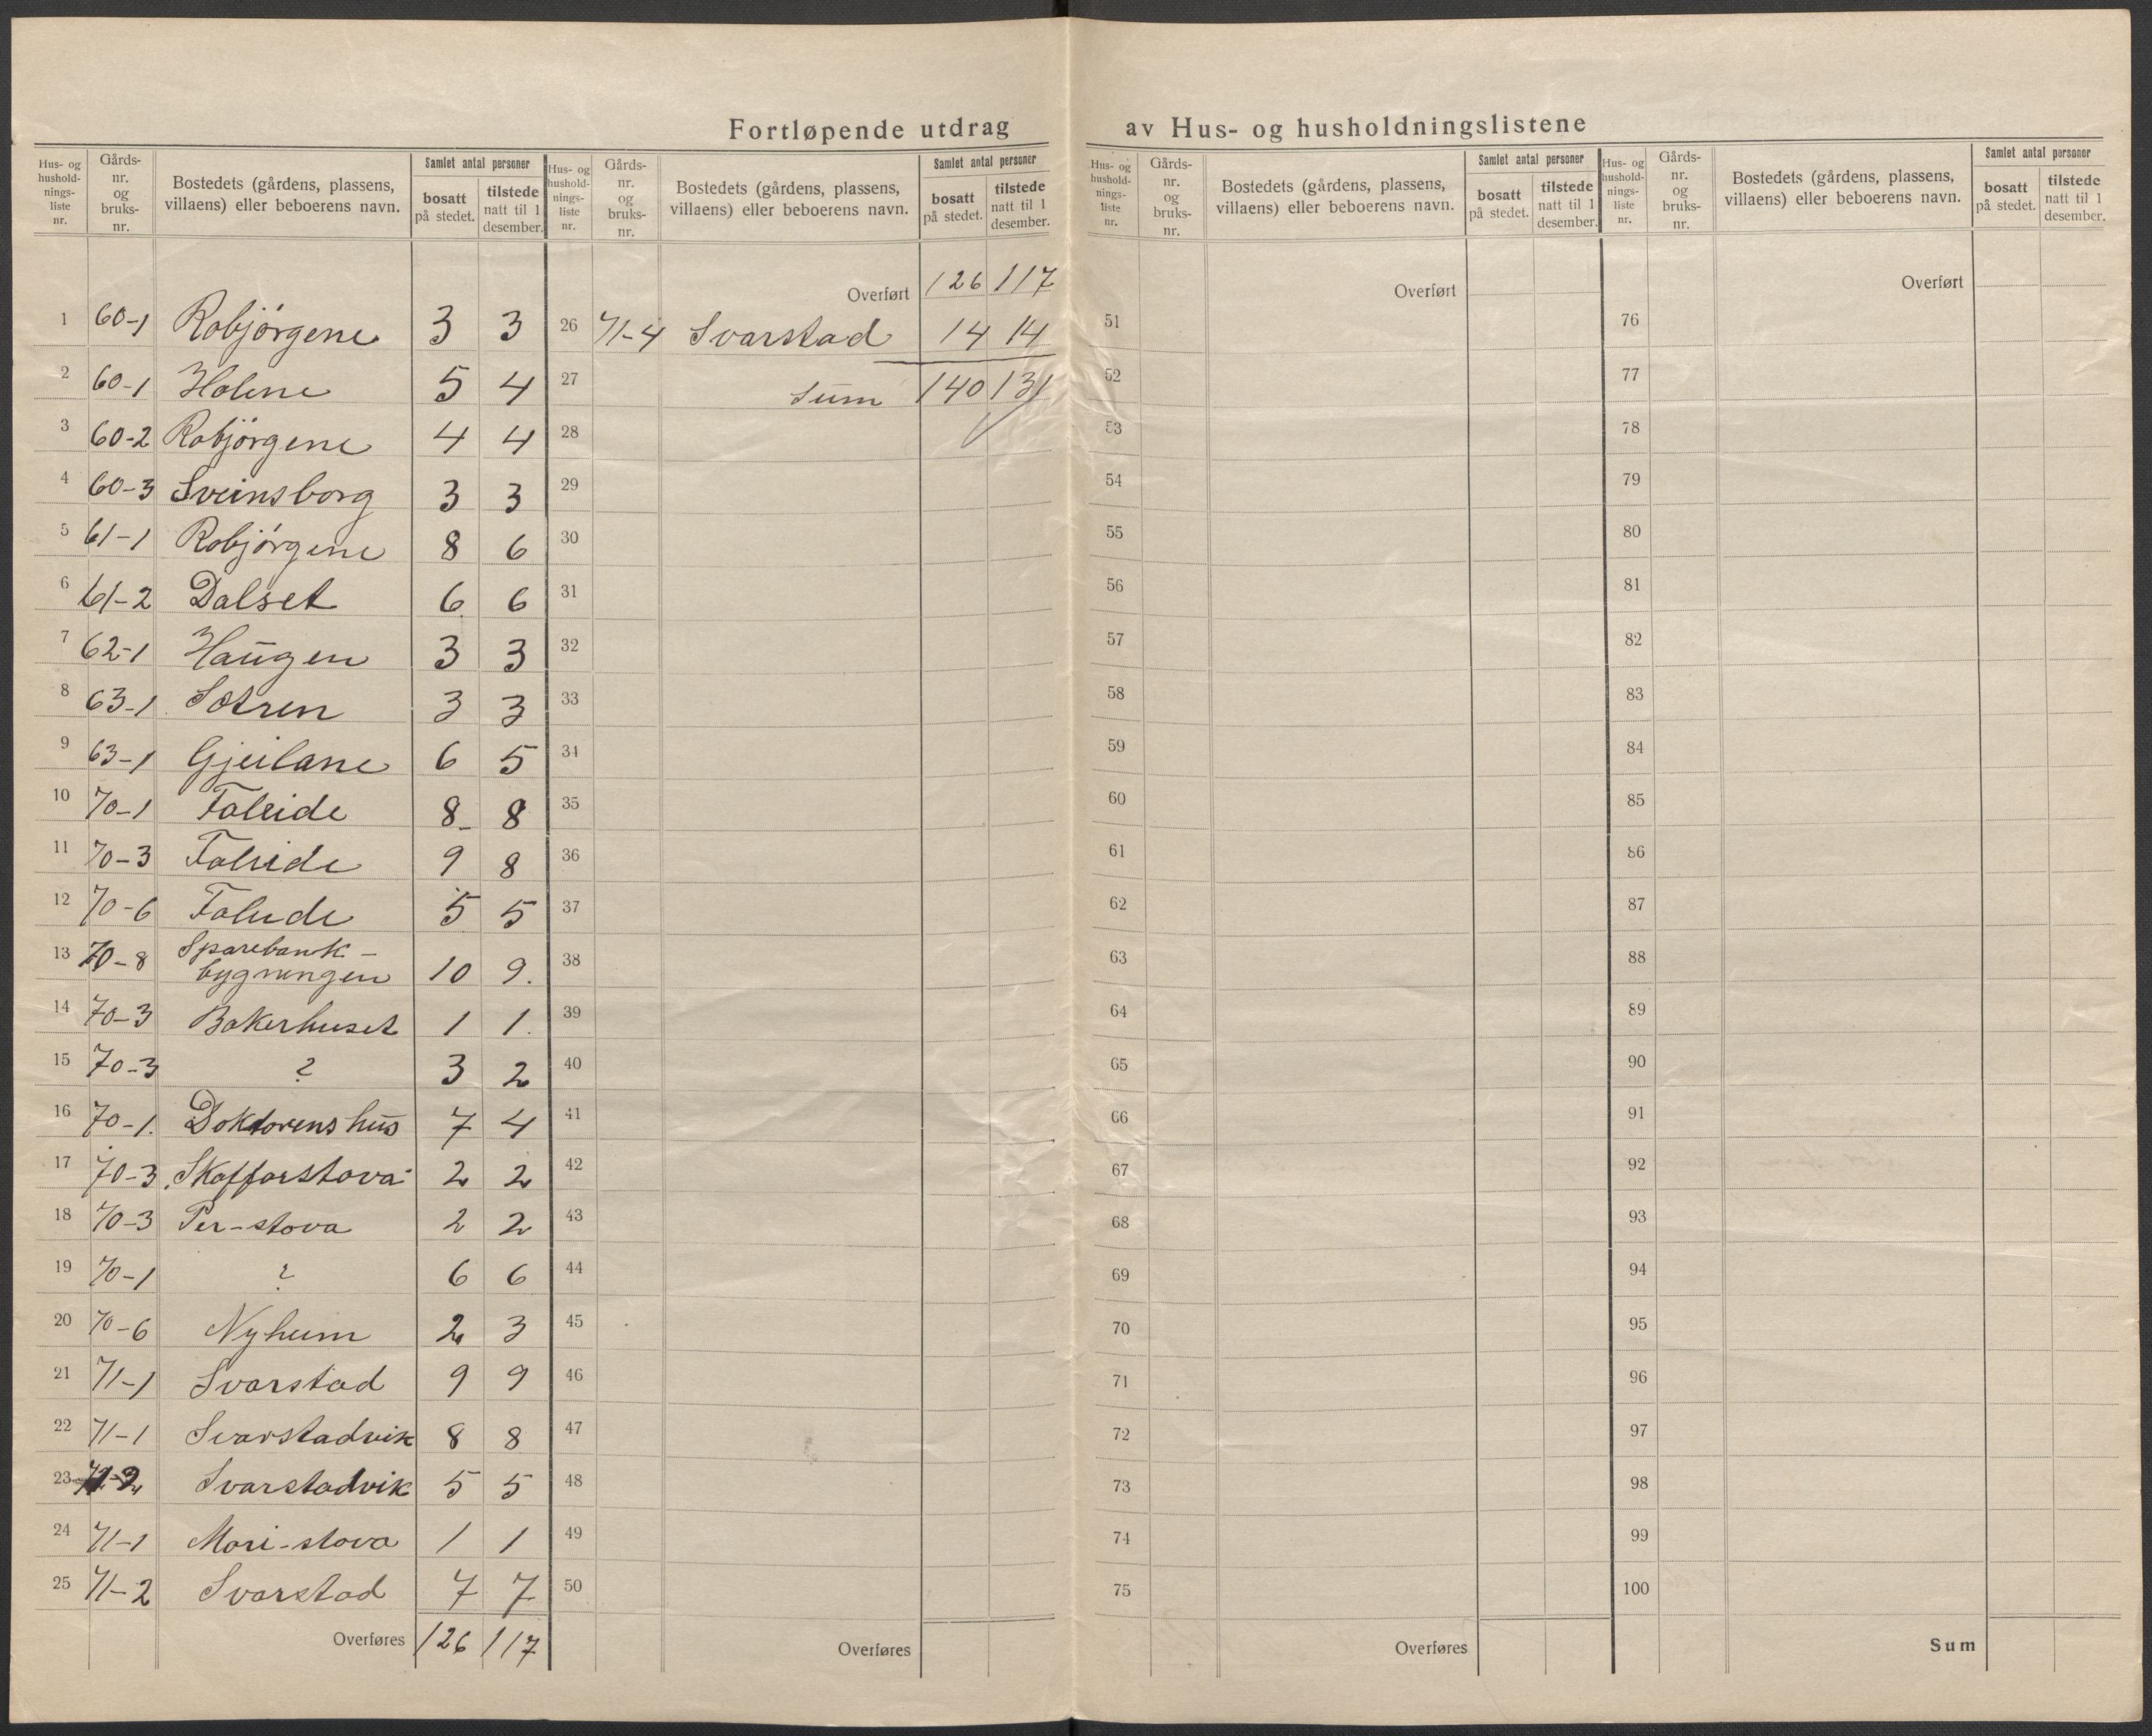 Fortløpende utdrag av Hus- og husholdningslistene
Hus- og hushold-nings-liste nr. Gårds-nr. og bruks-nr. Bostedets (gårdens, plassens, villaens) eller beboerens navn. Samlet antal personer bosatt på stedet. tilstede natt til 1 desember.
1 60-1 Robjørgene 3 3
2 60-1 Holene 5 4
3 60-2 Robjørgene 4 4
4 60-3 Sveinsborg 3 3
5 61-1 Robjørgene 8 6
6 61-2 Dalset 6 6
7 62-1 Haugen 3 3
8 63-1 Sætren 3 3
9 63-1 Gjeilane 6 5
10 70-1 Faleide 8 8
11 70-3 Faleide 9 8
12 70-6 Faleide 5 5
13 70-8 Sparebank-
bygningen 10 9.
14 70-3 Bakerhuset 1 1.
15 70-3 ? 3 2
16 70-1. Doktorens hus 7 4
17 70-3 Skaffarstova 2 2
18 70-3 Per-stova 2 2
19 70-1 ? 6 6
20 70-6 Nyheim 2 3
21 71-1 Svarstad 9 9
22 71-1 Svarstadvik 8 8
23 71-2 Svarstadvik 5 5
24 71-1 Mari-stova 1 1
25 71-2 Svarstad 7 7
Overføres 126 117
Hus- og hushold-nings-liste nr. Gårds-nr. og bruks-nr. Bostedets (gårdens, plassens, villaens) eller beboerens navn. Samlet antal personer bosatt på stedet. tilstede natt til 1 desember.
Overført 126 117
26 71-4 Svarstad 14 14
27 Sum 140 131
28
29
30
31
32
33
34
35
36
37
38
39
40
41
42
43
44
45
46
47
48
49
50
Overføres
Hus- og hushold-nings-liste nr. Gårds-nr. og bruks-nr. Bostedets (gårdens, plassens, villaens) eller beboerens navn. Samlet antal personer bosatt på stedet. tilstede natt til 1 desember.
Overført
51
52
53
54
55
56
57
58
59
60
61
62
63
64
65
66
67
68
69
70
71
72
73
74
75
Overføres
Hus- og hushold-nings-liste nr. Gårds-nr. og bruks-nr. Bostedets (gårdens, plassens, villaens) eller beboerens navn. Samlet antal personer bosatt på stedet. tilstede natt til 1 desember.
Overført
76
77
78
79
80
81
82
83
84
85
86
87
88
89
90
91
92
93
94
95
96
97
98
99
100
Sum